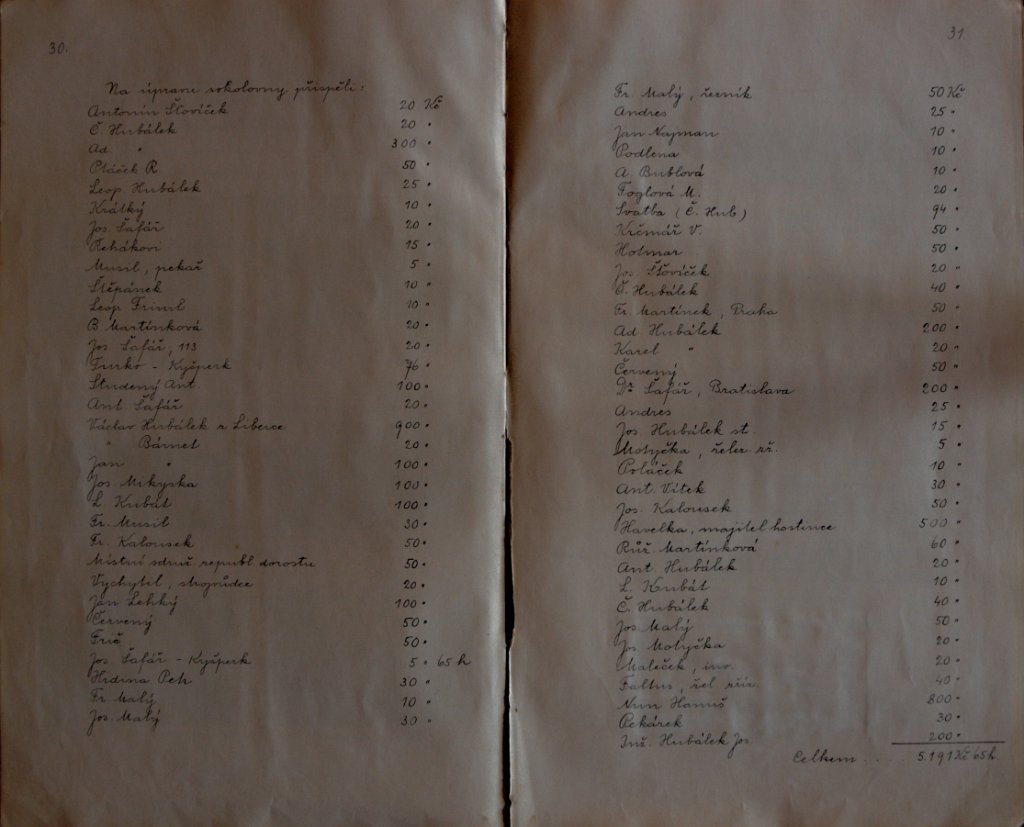 30.
Na úpravu sokolovny přispěli:
Antonín Šťovíček 20 Kč
Č. Hubálek 20 "
Ad " 300 "
Ptáček R. 50 "
Leop. Hubálek 25 "
Krátký 10 "
Jos. Šafář 20 "
Řehákovi 15 "
Musil, pekař 5 "
Štěpánek 10 "
Leop. Friml 10 "
B. Martínková 20 "
Jos. Šafář, 113 20 "
Furko - Kyšperk 76 "
Studený Ant. 100 "
Ant. Šafář 20 "
Václav Hubálek z Liberce 900 "
" Bárnet 20 "
Jan " 100 "
Jos. Mikyska 100 "
L. Kubát 100 "
Fr. Musil 30 "
Fr. Kalousek 50 "
Místní sdruž. republ. dorostu 50 "
Vychytil, strojvůdce 20 "
Jan Lehký 100 "
Červený 50 "
Frič 50 "
Jos. Šafář - Kyšperk 5 " 65 h
Hrdina Petr 30 "
Fr. Malý 10 "
Jos. Malý 30 "
31
Fr. Malý, řezník 50 Kč
Andres 25 "
Jan Najman 10 "
Podlena 10 "
A. Bublová 10 "
Foglová M. 20 "
Svatba (Č. Hub) 94 "
Krčmář V. 50 "
Hotmar 50 "
Jos. Šťovíček 20 "
Č. Hubálek 40 "
Fr. Martinek, Praha 50 "
Ad. Hubálek 200 "
Karel " 20 "
Červený 50 "
Dr. Šafář, Bratislava 200 "
Andres 25 "
Jos. Hubálek st. 15 "
Motyčka, želez. zř. 5 "
Poláček 10 "
Ant. Vítek 30 "
Jos. Kalousek 50 "
Havelka, majitel hostince 500 "
Růž. Martínková 60 "
Ant. Hubálek 20 "
L. Kubát 10 "
Č. Hubálek 40 "
Jos. Malý 50 "
Jos. Motyčka 20 "
Maleček, inv. 20 "
Faltus, žel. zříz. 40 "
Nun Hanuš 800 "
Pekárek 30 "
Inž. Hubálek Jos. 200 "
Celkem .... 5.191 Kč 65 h